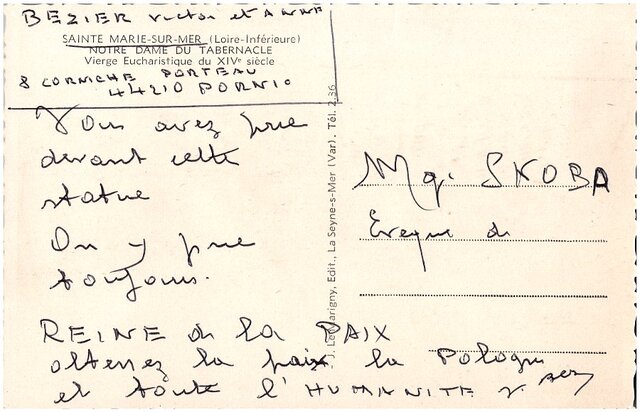 BEZIER Victor et ANNE
SAINTE MARIE-SUR-MER (Loire-Inférieure)
NOTRE DAME DU TABERNACLE
Vierge Eucharistique du XIVᵉ siècle
8 CORNICHE PORTEAU
44210 PORNIC
Vous avez prié
devant cette
statue
On y prie
toujours.
REINE de la PAIX
obtenez la paix la Pologne
et toute l'HUMANITE
Mgr. SKOBA
Evêque de
J. Le Marigny, Edit., La Seyne-s-Mer (Var). Tél. 2.36